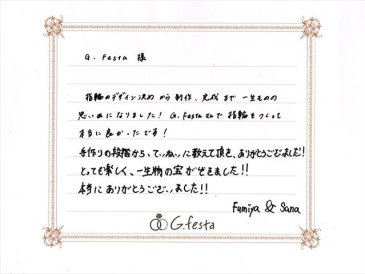 G. Festa 様
指輪のデザイン決め から 制作、完成 まで 一生ものの
思い出になりました！ G. Festaさんで 指輪をつくって
本当に良かったです！
手作りの段階から、ていねいに教えて頂き、ありがとうございました!!
とっても楽しく、一生物の宝ができました!!
本当にありがとうございました!!
Fumiya & Sana
G.festa